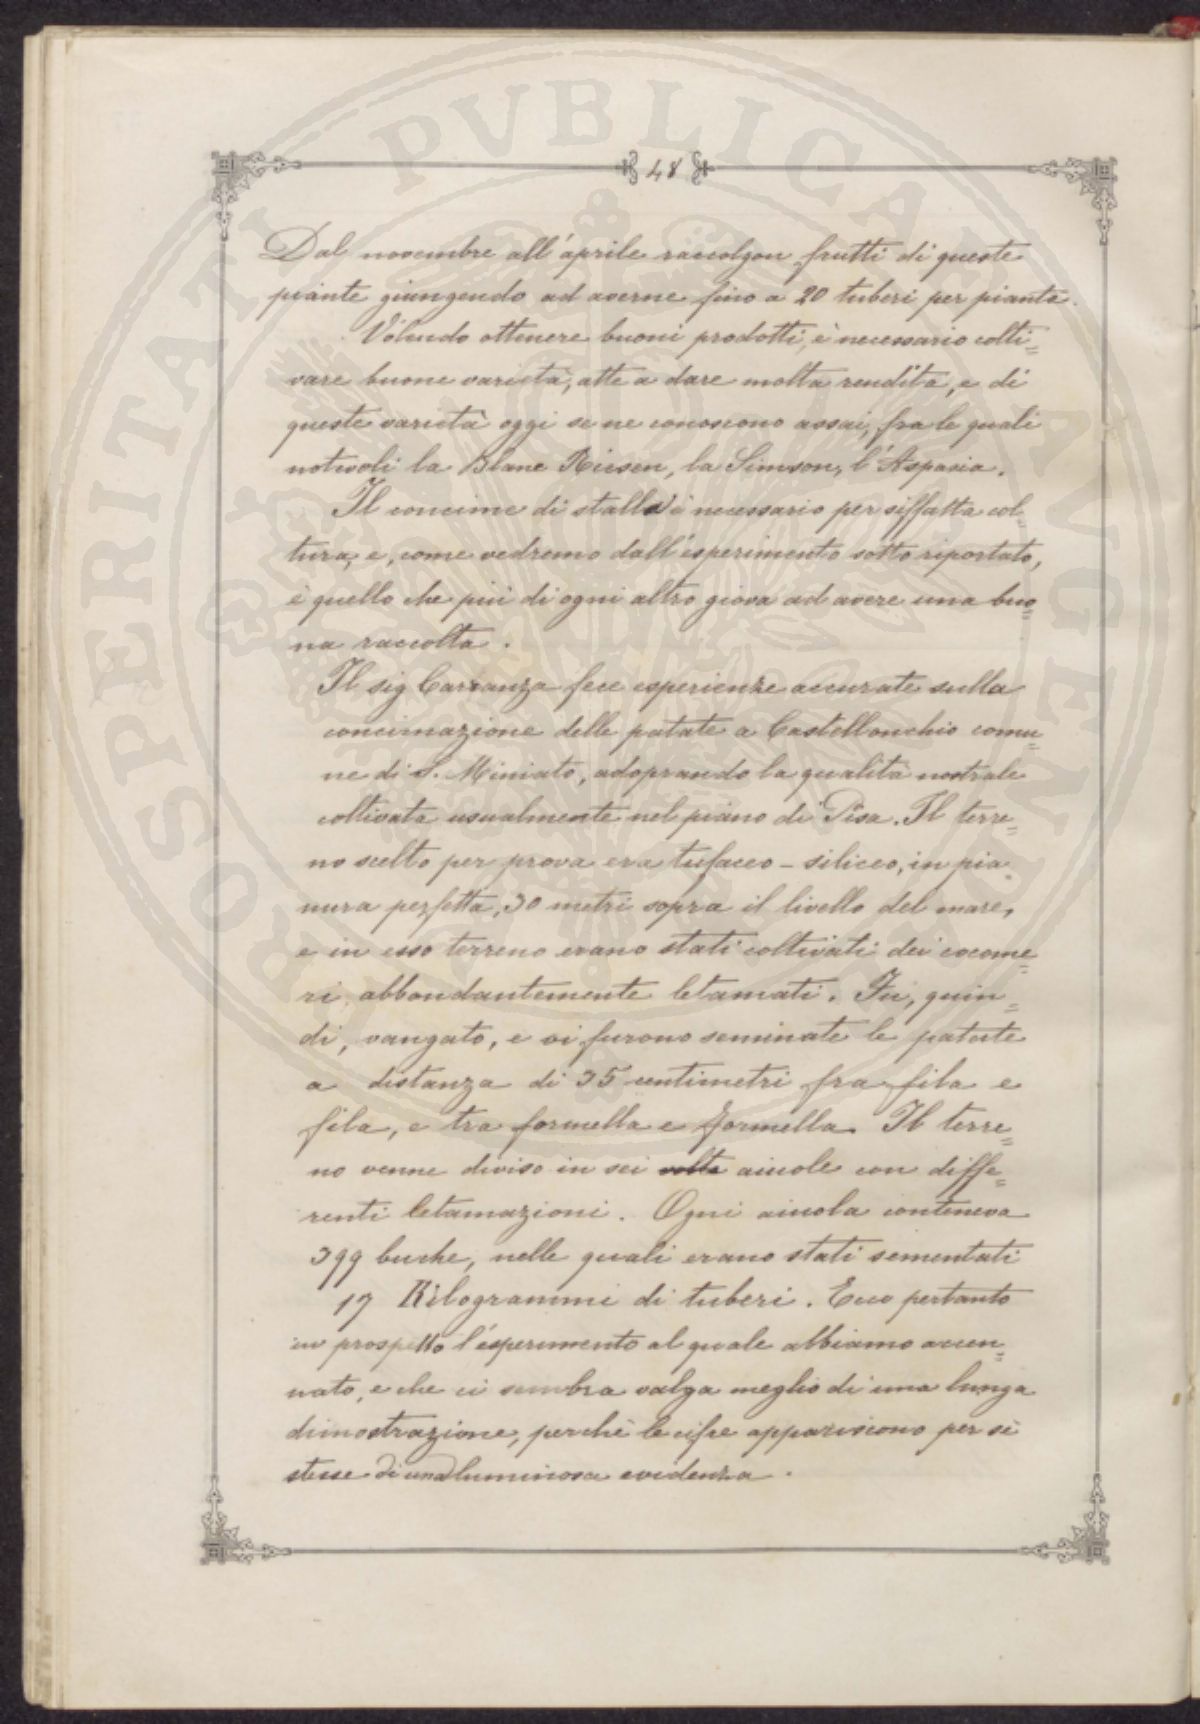 48
Dal novembre all'aprile raccolgon frutti di queste
piante giungendo ad averne fino a 20 tuberi per pianta.
Volendo ottenere buoni prodotti, è necessario colti=
vare buone varietà, atte a dare molta rendita, e di
queste varietà oggi se ne conoscono assai, fra le quali
notevoli la Blane Riesen, la Simson, l'Aspasia.
Il concime di stalla è necessario per siffatta col
tura, e, come vedremo dall'esperimento sotto riportato,
è quello che più di ogni altro giova ad avere una buo=
na raccolta.
Il sig Carranza fece esperienze accurate sulla
concimazione delle patate a Castellonchio comu=
ne di S. Miniato, adoprando la qualità nostrale
coltivata usualmente nel piano di Pisa. Il terre=
no scelto per prova era tufaceo - siliceo, in pia=
nura perfetta, 30 metri sopra il livello del mare,
e in esso terreno erano stati coltivati dei cocome=
ri abbondantemente letamati. Fu, quin=
di, vangato, e vi furono seminate le patate
a distanza di 35 centimetri fra fila e
fila, e tra formella e formella. Il terre=
no venne diviso in sei volte aiuole con diffe=
renti letamazioni. Ogni aiuola conteneva
399 buche, nelle quali erano stati sementati
17 Kilogrammi di tuberi. Ecco pertanto
in prospetto l'esperimento al quale abbiamo accen=
nato, e che ci sembra valga meglio di una lunga
dimostrazione, perchè le cifre appariscono per sè
stesse di una luminosa evidenza.
PROSPERITATI PVBLICAE AVGENDAE